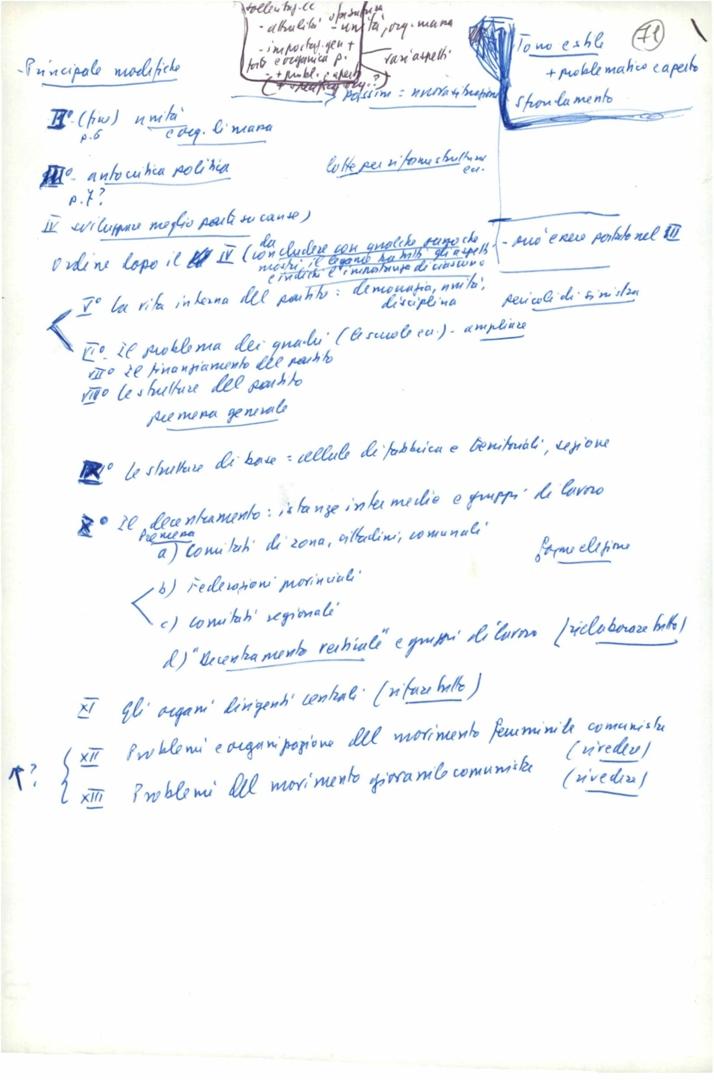 71
- unità, org. mana
vari aspetti
Tono e stile
+ problematico e aperto
sfrondamento
Principale modifiche
II° (fine) unità
p. 6
e org. di massa
III° - autocritica politica
p. 7?
lotte per riforme struttura
ecc.
IV sviluppare meglio parte su cause)
Ordine dopo il IV (da
concludere con qualche rigo che
mostri il legame tra tutti gli aspetti
e indichi l'importanza di ciascuno
- può essere portato nel III
V° La vita interna del partito: democrazia, unità,
disciplina
pericoli di sinistra
VI° - Il problema dei quadri (le scuole ecc.) - ampliare
VII° Il finanziamento del partito
VIII° Le strutture del partito
premessa generale
IX° Le strutture di base = cellule di fabbrica e territoriali, sezione
X° Il decentramento: istanze intermedie e gruppi di lavoro
Premessa
a) Comitati di zona, cittadini, comunali
b) Federazioni provinciali
c) Comitati regionali
d) "Decentramento verticale" e gruppi di lavoro (rielaborare tutto)
XI Gli organi dirigenti centrali (rifare tutto)
XII Problemi e organizzazione del movimento femminile comunista
(rivedere)
?
XIII Problemi del movimento giovanile comunista (rivedere)